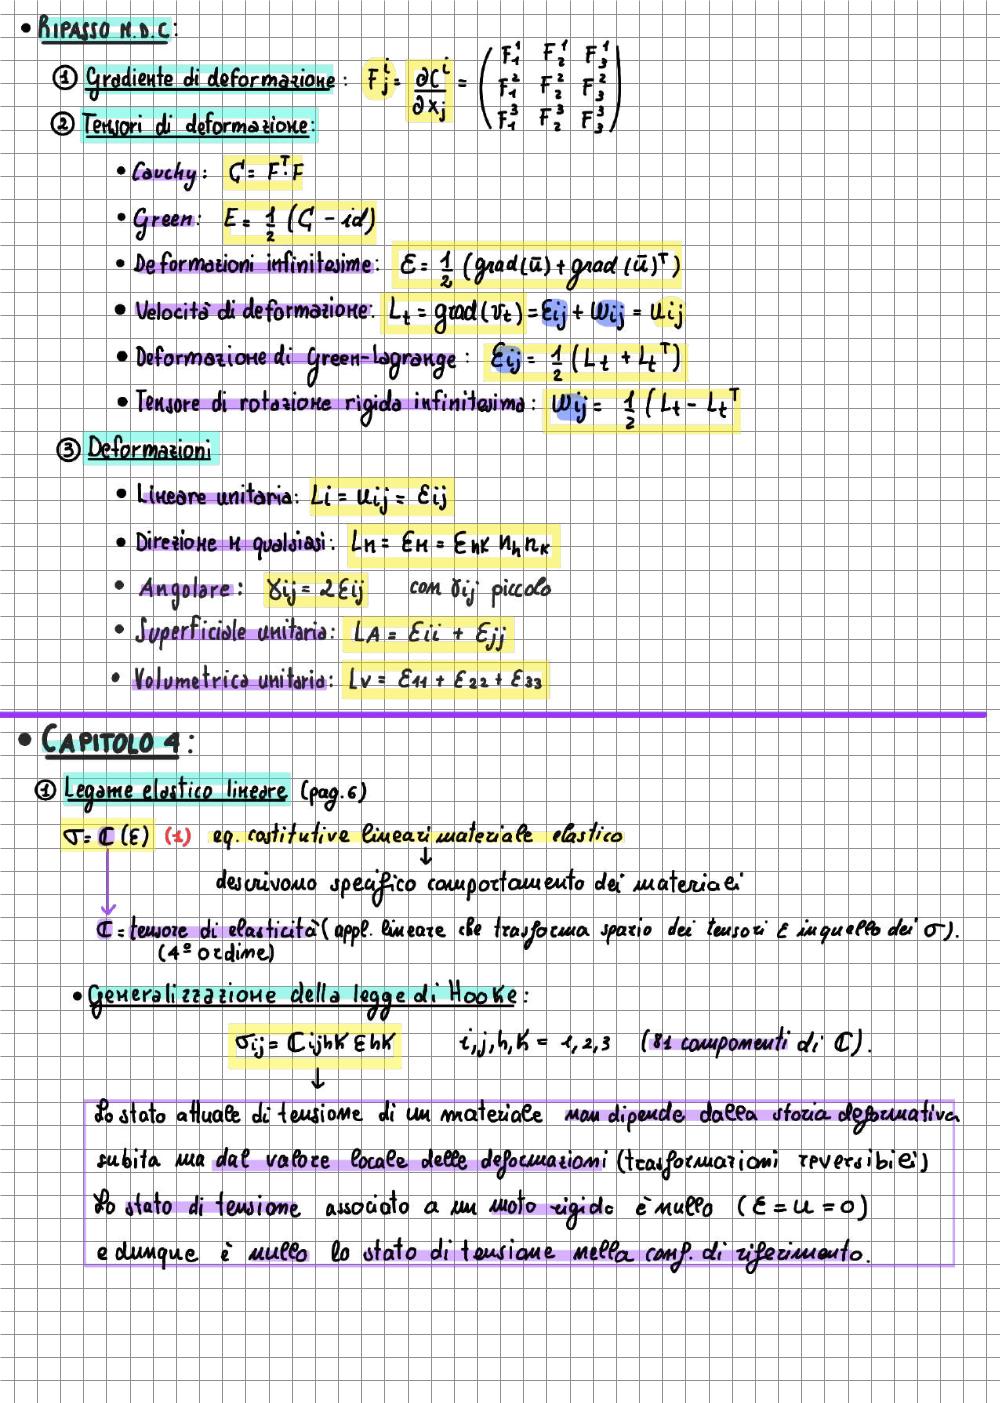 • RIPASSO M.D.C:
① Gradiente di deformazione: F^i_j = ∂C^i/∂x_j = (F^1_1 F^1_2 F^1_3
F^2_1 F^2_2 F^2_3
F^3_1 F^3_2 F^3_3)
② Tensori di deformazione:
• Cauchy: C = F^T·F
• Green: E = 1/2 (C - id)
• Deformazioni infinitesime: ε = 1/2 (grad(ū) + grad(ū)^T)
• Velocità di deformazione: Lt = grad(vt) = εij + wij = uij
• Deformazione di Green-Lagrange: εij = 1/2 (Lt + Lt^T)
• Tensore di rotazione rigida infinitesima: wij = 1/2 (Lt - Lt^T
③ Deformazioni
• Lineare unitaria: Li = uij = εij
• Direzione n qualsiasi: Ln = εn = εhk nh nk
• Angolare: γij = 2εij con γij piccolo
• Superficiale unitaria: LA = εii + εjj
• Volumetrica unitaria: Lv = ε11 + ε22 + ε33
• CAPITOLO 4:
① Legame elastico lineare (pag.6)
σ = ℂ(ε) (1) eq. costitutive lineari materiale elastico
↓
descrivono specifico comportamento dei materiali
ℂ = tensore di elasticità (appl. lineare che trasforma spazio dei tensori ε in quello dei σ).
(4º ordine)
• Generalizzazione della legge di Hooke:
σij = ℂijhk εhk i,j,h,k = 1,2,3 (81 componenti di ℂ).
↓
Lo stato attuale di tensione di un materiale non dipende dalla storia deformativa
subita ma dal valore locale delle deformazioni (trasformazioni reversibili)
Lo stato di tensione associato a un moto rigido è nullo (ε = u = 0)
e dunque è nullo lo stato di tensione nella conf. di riferimento.